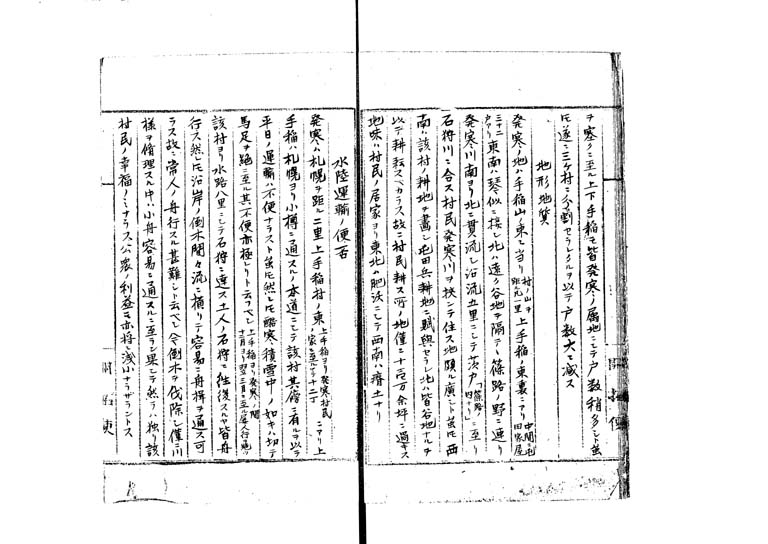 ヲ塞クニ至ル上下手稲モ皆発寒ノ属地ニシテ戸数稍多シト雖
𪜈遂ニ三ケ村ニ分割セラレタルヲ以テ戸数大ニ減ス
地形地質
発寒ノ地ハ手稲山ノ東ニ当リ 村ノ山ヲ距凡一里 上手稲ノ東裏ニアリ
東南ハ琴似ニ接シ北ハ遠ク谷地ヲ隔テ篠路ノ野ニ連リ
発寒川南ヨリ北ニ貫流シ沿流五里ニシテ茨戸 ニ至リ
石狩川ニ合ス村民発寒川ヲ挟ンテ住ス地頗ル広シト雖𪜈西
南ハ該村ノ耕地ヲ画シ屯田兵耕地ニ賦与セラレ北ハ皆谷地ナルヲ
以テ耕耘スヘカラス故ニ村民耕ス所ノ地僅ニ十二万余坪ニ過キス
地味ハ村民ノ居家ヨリ東北ハ肥沃ニシテ西南ハ瘠土ナリ
水陸運輸ノ便否
発寒ハ札幌ヲ距ル二里上手稲村ノ東ニアリ上
手稲ハ札幌ヨリ小樽ニ通スルノ本道ニシテ該村其傍ニ有ルヲ以テ
平日ノ運輸ハ不便ナラスト雖𪜈然レ𪜈酷寒積雪中ノ如キハ切テ
馬足ヲ絶ニ至ル其不便亦極レリト云フヘシ
該村ヨリ水路八里ニシテ石狩ニ達ス土人ノ石狩ニ往復スルヤ皆舟
行ス然レ𪜈沿岸ノ倒木間々流ニ横リテ容易ニ舟楫ヲ通ス可
ラス故ニ常人ノ舟行スル甚難シト云ヘシ今倒木ヲ伐除シ僅ニ川
様ヲ脩理スル中ハ小舟容易ニ通スルニ至ラン果シテ然ラハ独リ該
村民ノ幸福ノミナラス公衆ノ利益モ亦将ニ浅小ナラサラントス
開拓使